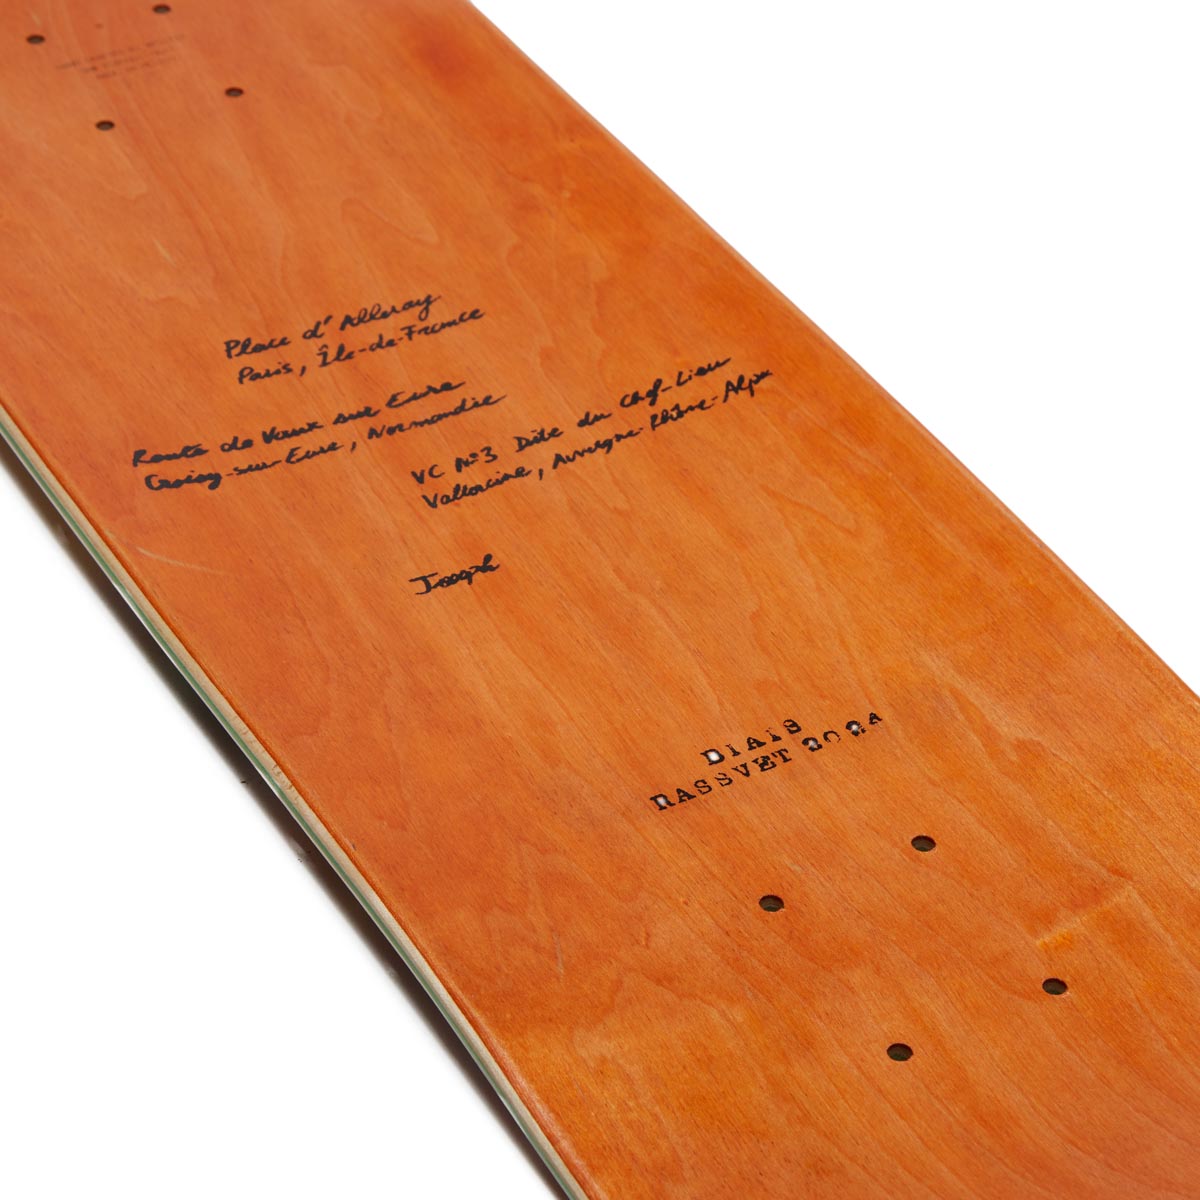 Place d'Alleray
Paris, Île-de-France
Route de Vaux sur Eure
Croisy-sur-Eure, Normandie
VC N°3 Dite du Chef-Lieu
Vallorcine, Auvergne-Rhône-Alpe
Joseph
DIAIS
RASSVET 2024